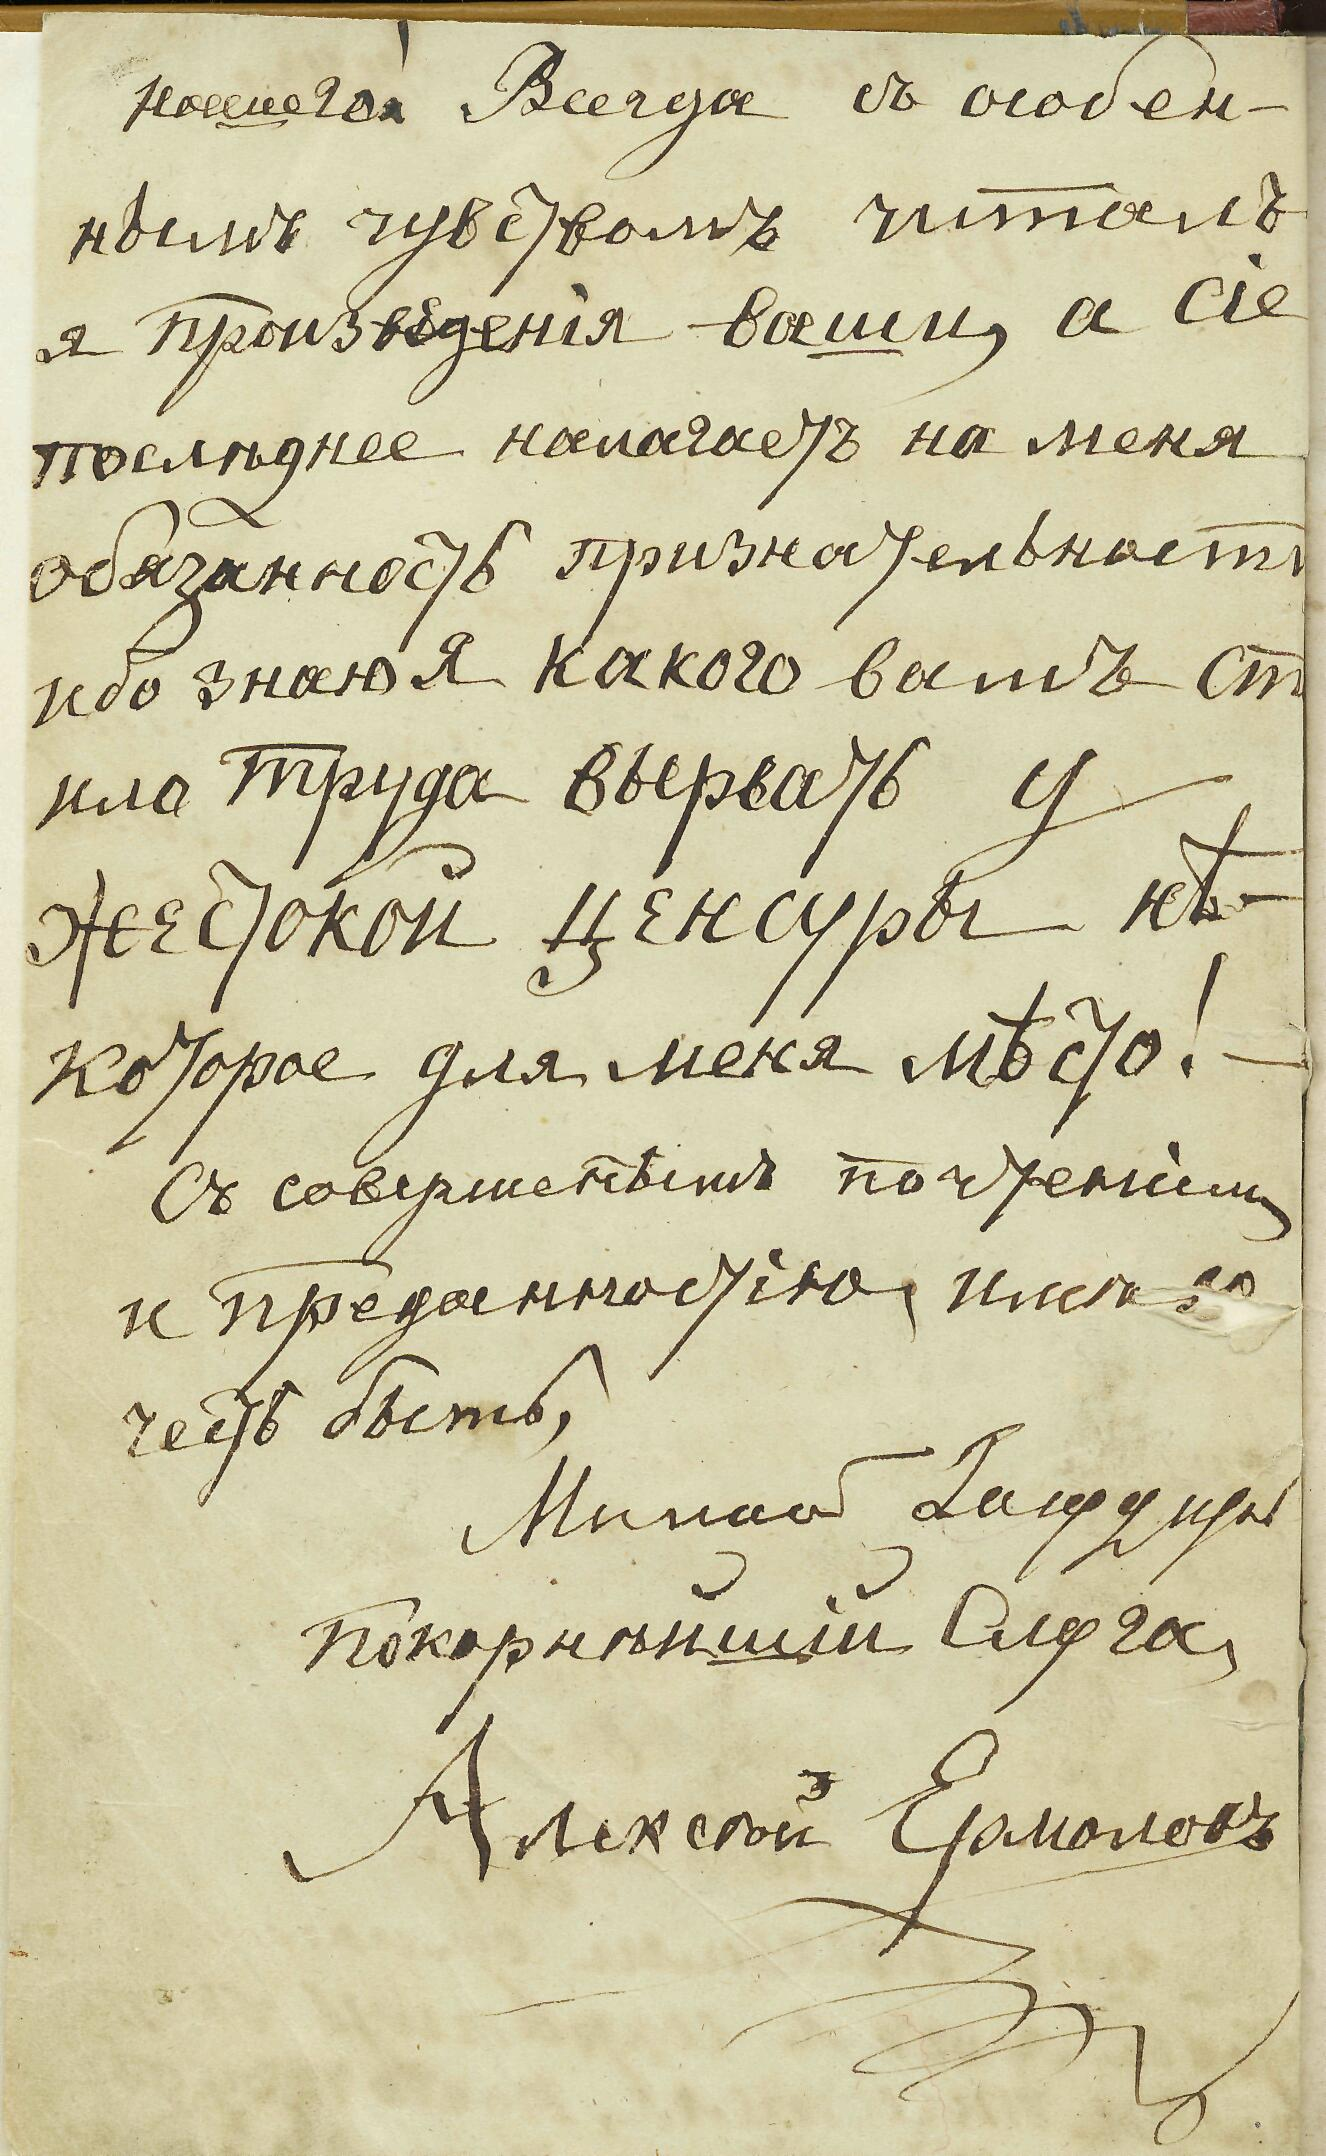 нашего! Всегда съ особен-
нымъ чувствомъ читалъ
я произведенія ваши, а сіе
последнее налагаетъ на меня
обязанность признательности
ибо знаю я какого вамъ сто
ила труда вырвать у
жестокой ценсуры нѣ-
которое для меня мѣсто! —
Съ совершеннымъ почтеніемъ
и преданностію, имѣю
честь быть,
Милостивый Государь
покорнѣйшій слуга,
Алексѣй Ермоловъ